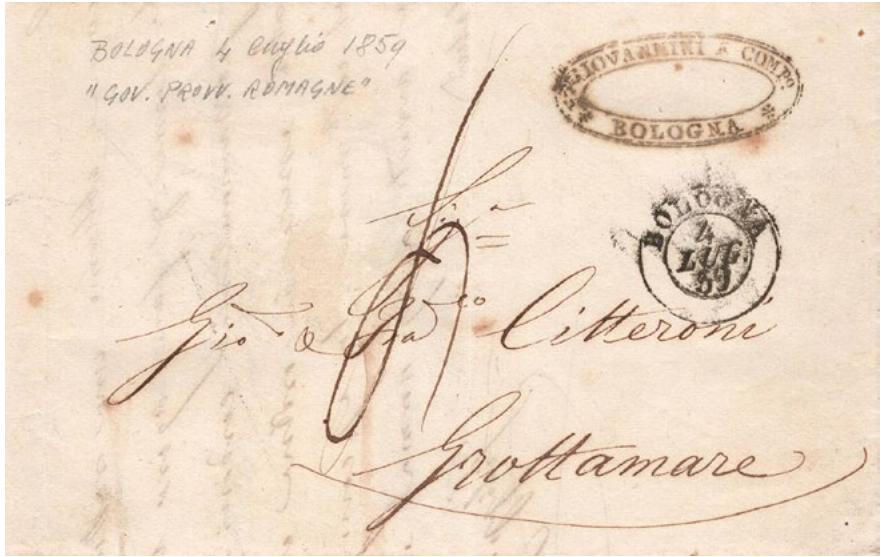 BOLOGNA 4 luglio 1859
"GOV. PROVV. ROMAGNE"
GIOVANNINI & COMP.º
BOLOGNA
BOLOGNA
4
LUG
59
Gio & Fra Citteroni
Grottamare